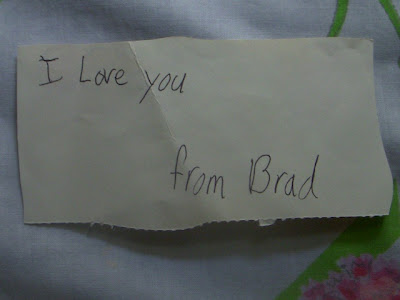 I Love you
from Brad